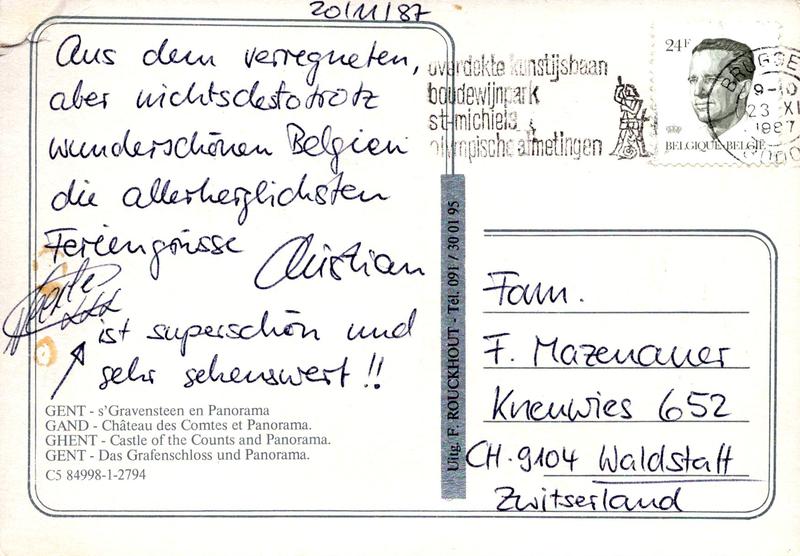 20/11/87
Aus dem verregneten,
aber nichtsdestotrotz
wunderschönen Belgien
die allerherzlichsten
Feriengrüsse Christian
ist superschön und
sehr sehenswert !!
GENT - s'Gravensteen en Panorama
GAND - Château des Comtes et Panorama.
GHENT - Castle of the Counts and Panorama.
GENT - Das Grafenschloss und Panorama.
C5 84998-1-2794
Uitg. F. ROUCKHOUT - Tél. 091 / 30 01 95
overdekte kunstijsbaan
boudewijnpark
st-michiels
olympische afmetingen
24F
BELGIQUE-BELGIË
BRUGGE
9-10
23 XI
1987
Fam.
F. Mazenauer
Kneuwies 652
CH-9104 Waldstatt
Zwitserland